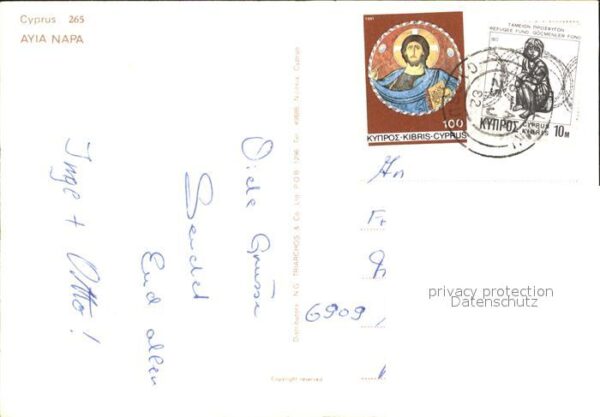 Cyprus 265
ΑΥΙΑ ΝΑΡΑ
Viele Grüsse
Sendet
Euch allen
Inge + Otto!
Distributors: N.G. TRIARCHOS & Co. Ltd P.O.B. 1296 Tel. Nicosia, Cyprus
Copyright reserved
1981
100
ΚΥΠΡΟΣ-KIBRIS-CYPRUS
ΤΑΜΕΙΟΝ ΠΡΟΣΦΥΓΩΝ
REFUGEE FUND GÖÇMENLER FONU
ΚΥΠΡΟΣ
CYPRUS
KIBRIS
10M
Fr
6909
privacy protection
Datenschutz